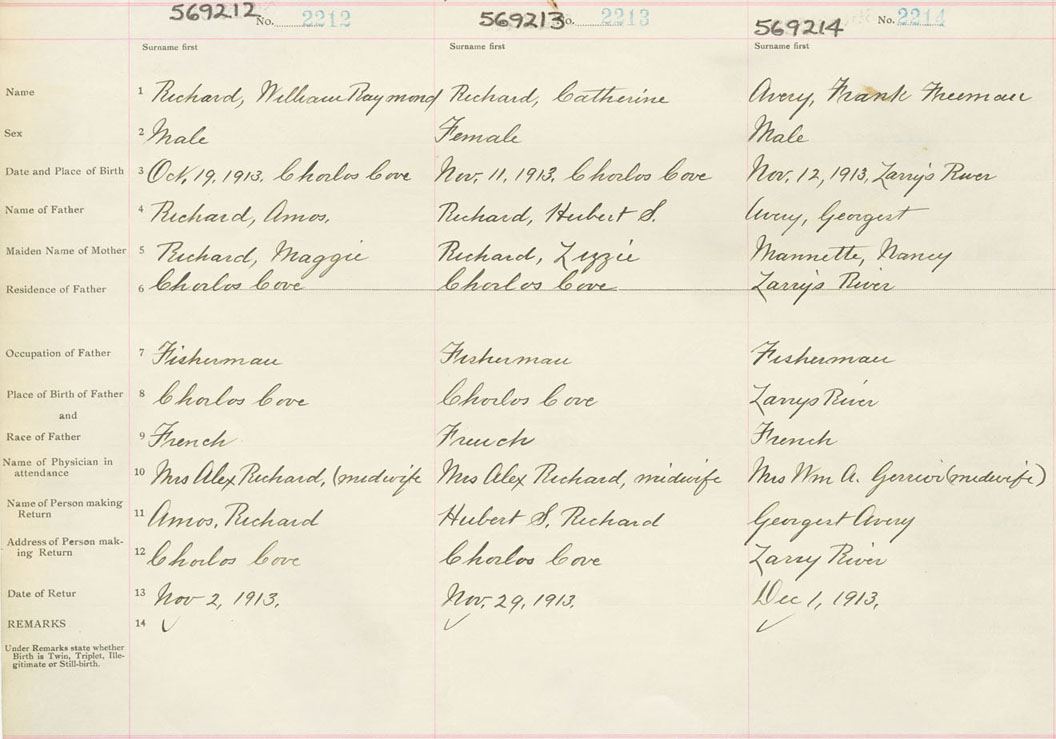 569212 No. 2212 569213 No. 2213 569214 No. 2214
Surname first Surname first Surname first
Name 1 Richard, William Raymond Richard, Catherine Avery, Frank Freeman
Sex 2 Male Female Male
Date and Place of Birth 3 Oct. 19, 1913. Chorlos Cove Nov. 11, 1913. Chorlos Cove Nov. 12, 1913, Larry's River
Name of Father 4 Richard, Amos. Richard, Hubert S. Avery, Georgest
Maiden Name of Mother 5 Richard, Maggie Richard, Lizzie Mannette, Nancy
Residence of Father 6 Chorlos Cove Chorlos Cove Larry's River
Occupation of Father 7 Fisherman Fisherman Fisherman
Place of Birth of Father 8 Chorlos Cove Chorlos Cove Larrys River
and
Race of Father 9 French French French
Name of Physician in
attendance 10 Mrs Alex Richard, (midwife Mrs Alex Richard, midwife Mrs Wm A. (midwife)
Name of Person making
Return 11 Amos, Richard Hubert S. Richard Georgest Avery
Address of Person mak-
ing Return 12 Chorlos Cove Chorlos Cove Larry River
Date of Retur 13 Nov 2, 1913. Nov. 29, 1913. Dec 1, 1913.
REMARKS 14
Under Remarks state whether
Birth is Twin, Triplet, Ille-
gitimate or Still-birth.